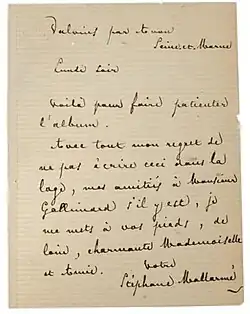 Valvins par Avon
Seine-et-Marne
Lundi soir
Voilà pour faire patienter
l'album.
Avec tout mon regret de
ne pas écrire ceci dans la
loge, mes amitiés à Monsieur
Gallimard s'il y est, je
me mets à vos pieds, de
loin, charmante Mademoiselle
et Amie.
Votre
Stéphane Mallarmé